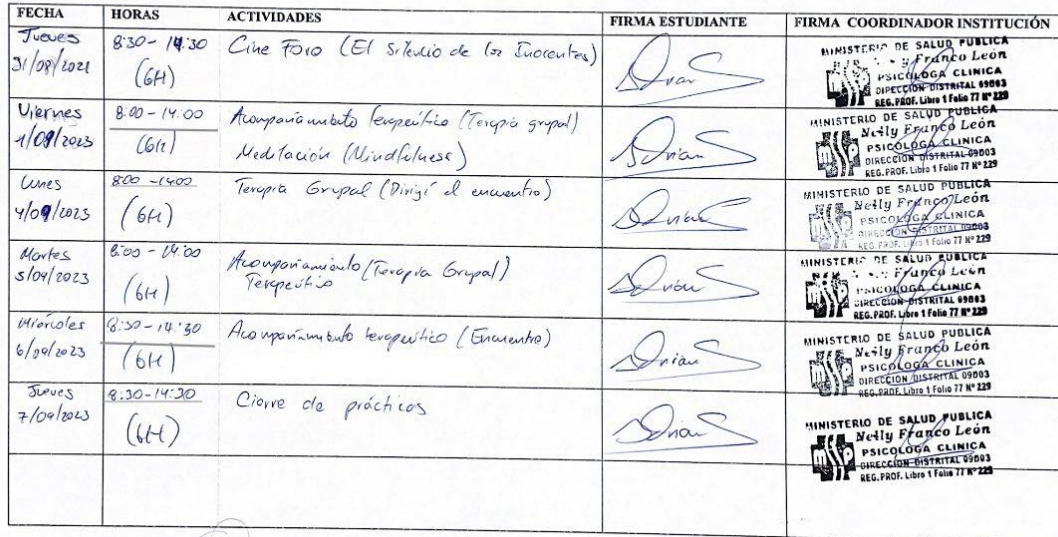 FECHA HORAS ACTIVIDADES FIRMA ESTUDIANTE FIRMA COORDINADOR INSTITUCIÓN
Jueves 8:30 - 14:30 Cine Foro (El Silencio de los Inocentes)
31/08/2021 (6H)
MINISTERIO DE SALUD PUBLICA
Franco León
PSICOLOGA CLINICA
DIRECCION DISTRITAL 09D03
REG. PROF. Libro 1 Folio 77 Nº 229
Viernes 8:00 - 14:00 Acompañamiento terapeútico (Terapia grupal)
1/09/2023 (6H) Meditación (Mindfulness)
MINISTERIO DE SALUD PUBLICA
Nelly Franco León
PSICOLOGA CLINICA
DIRECCION DISTRITAL 09D03
REG. PROF. Libro 1 Folio 77 Nº 229
Lunes 8:00 - 14:00 Terapia Grupal (Dirigí el encuentro)
4/09/2023 (6H)
MINISTERIO DE SALUD PUBLICA
Nelly Franco León
PSICOLOGA CLINICA
DIRECCION DISTRITAL 09D03
REG. PROF. Libro 1 Folio 77 Nº 229
Martes 8:00 - 14:00 Acompañamiento (Terapia Grupal)
5/09/2023 (6H) Terapeútico
MINISTERIO DE SALUD PUBLICA
Franco León
PSICOLOGA CLINICA
DIRECCION DISTRITAL 09D03
REG. PROF. Libro 1 Folio 77 Nº 229
Miércoles 8:30 - 14:30 Acompañamiento terapeútico (Encuentro)
6/09/2023 (6H)
MINISTERIO DE SALUD PUBLICA
Nelly Franco León
PSICOLOGA CLINICA
DIRECCION DISTRITAL 09D03
REG. PROF. Libro 1 Folio 77 Nº 229
Jueves 8:30 - 14:30 Cierre de prácticas
7/09/2023 (6H)
MINISTERIO DE SALUD PUBLICA
Nelly Franco León
PSICOLOGA CLINICA
DIRECCION DISTRITAL 09D03
REG. PROF. Libro 1 Folio 77 Nº 229